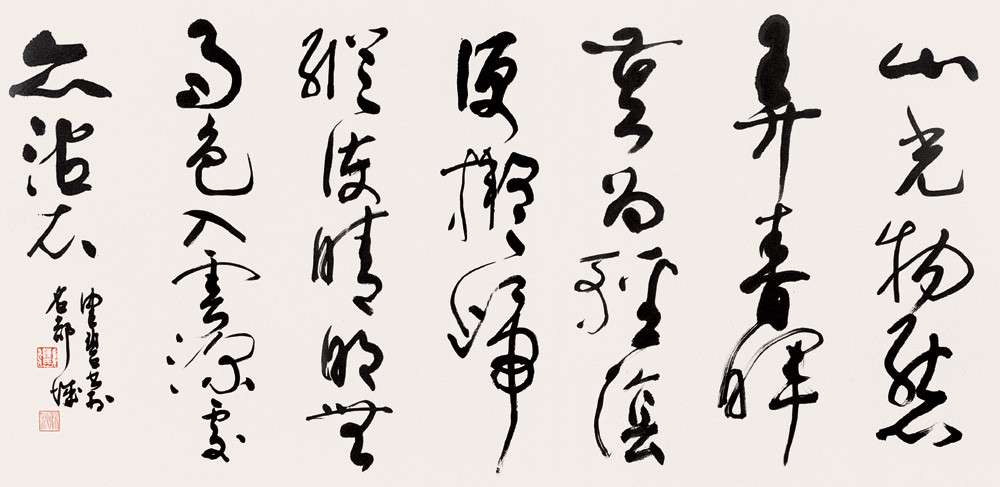 山光物態
弄春暉
莫為輕陰
便擬歸
縱使晴明無
雨色入雲深處
亦沾衣
書於
古都